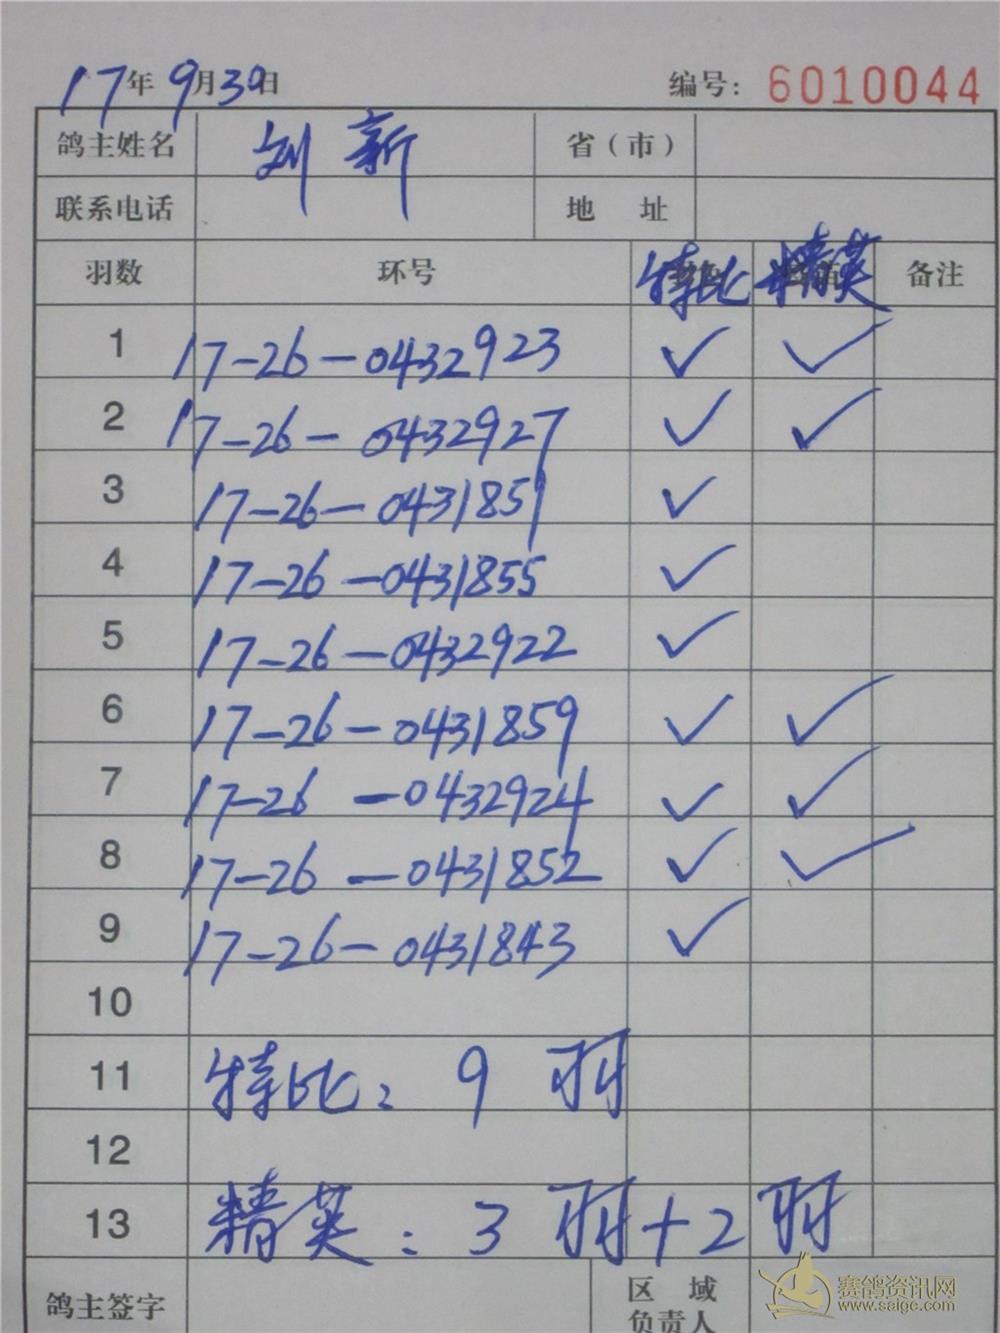 17年9月30日 编号: 6010044
鸽主姓名 刘新 省（市）
联系电话 地 址
羽数 环号 特比 精英 备注
1 17-26-0432923 ✓ ✓
2 17-26-0432927 ✓ ✓
3 17-26-0431851 ✓
4 17-26-0431855 ✓
5 17-26-0432922 ✓
6 17-26-0431859 ✓ ✓
7 17-26-0432924 ✓ ✓
8 17-26-0431852 ✓ ✓
9 17-26-0431843 ✓
10
11 特比: 9 羽
12
13 精英: 3 羽+2 羽
鸽主签字 区 域
负责人
赛鸽资讯网
www.saigc.com